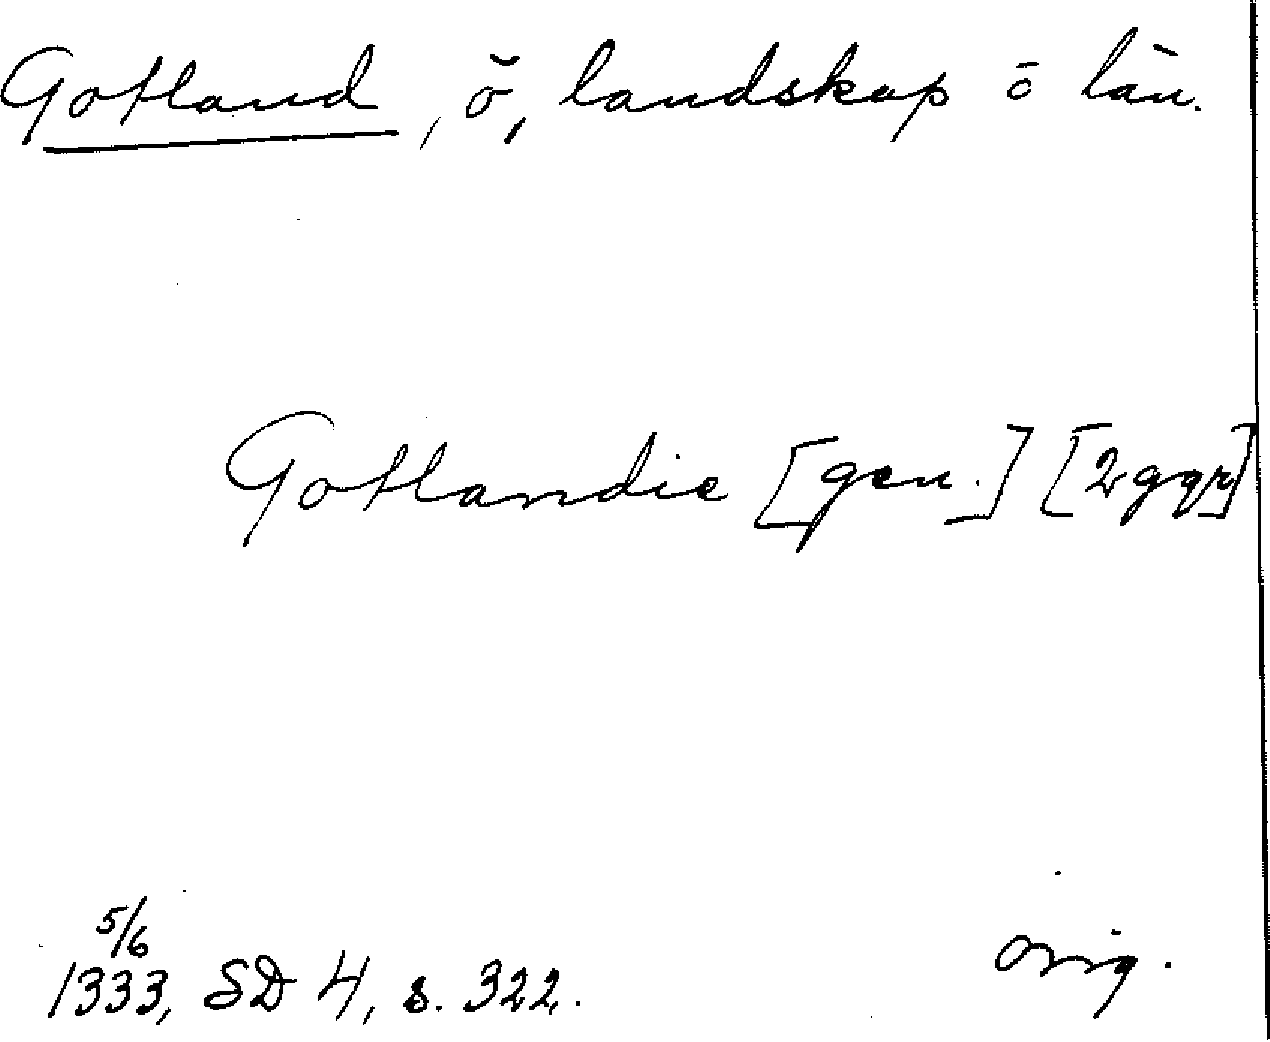 Gotland, ö, landskap o län.
Gotlandie [gen.] [2 ggr]
5/6
1333, SD 4, s. 322.
orig.